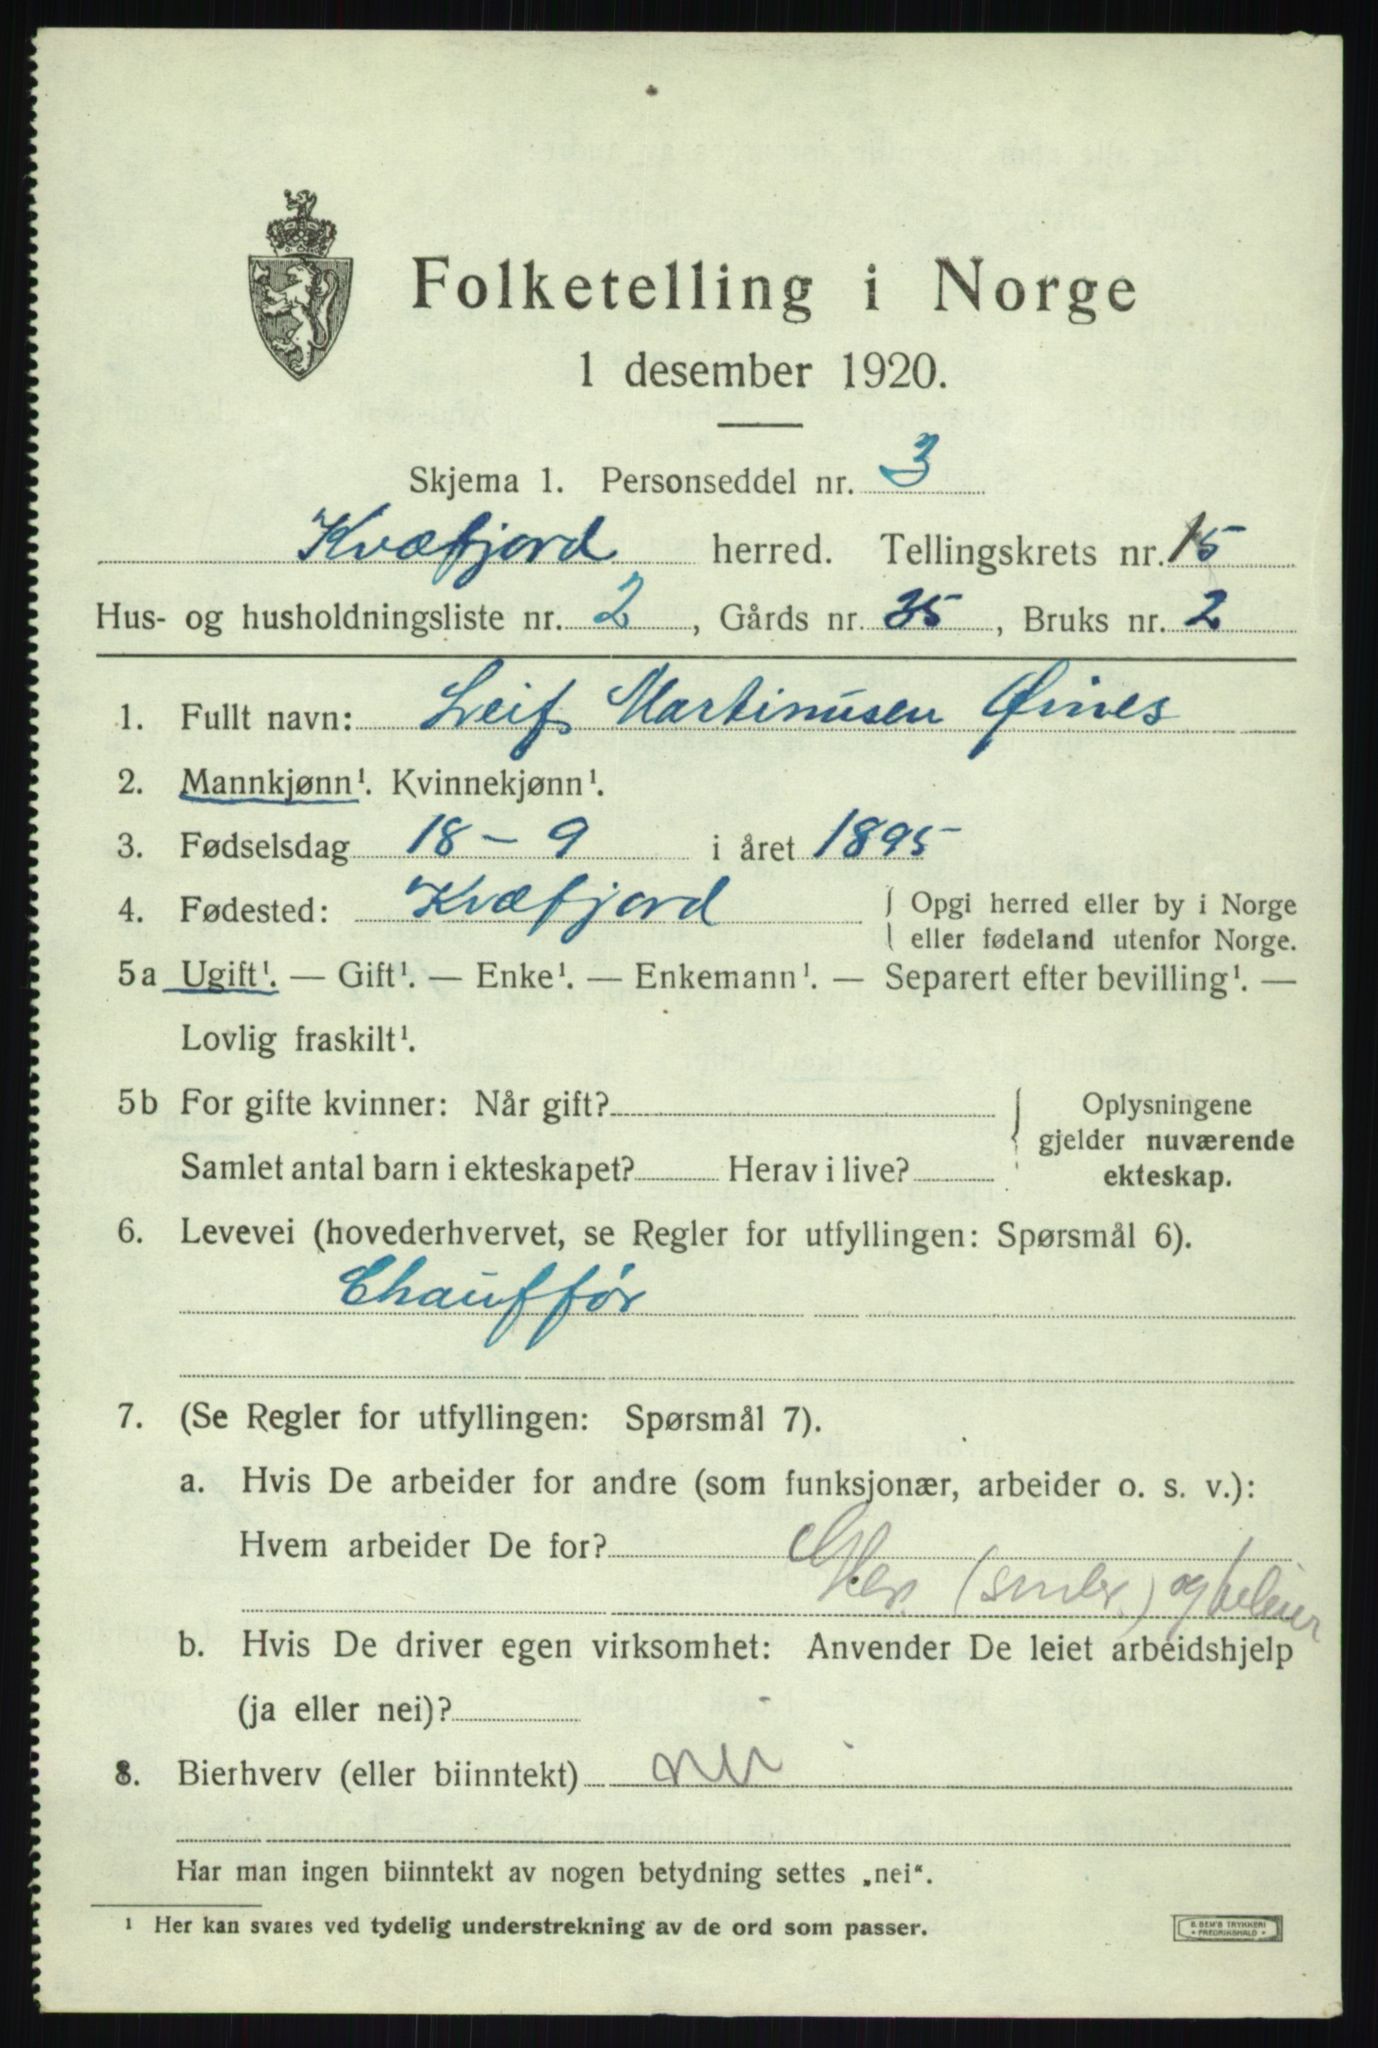 Folketelling i Norge
1 desember 1920.
Skjema 1. Personseddel nr. 3
Kvæfjord herred. Tellingskrets nr. 15
Hus- og husholdningsliste nr. 2, Gårds nr. 35, Bruks nr. 2
1. Fullt navn: Leif Martinusen Øines
2. Mannkjønn¹. Kvinnekjønn¹.
3. Fødselsdag 18 – 9 i året 1895
4. Fødested: Kvæfjord { Opgi herred eller by i Norge
eller fødeland utenfor Norge.
5a Ugift¹. — Gift¹. — Enke¹. — Enkemann¹. — Separert efter bevilling¹. —
Lovlig fraskilt¹.
5b For gifte kvinner: Når gift?
Samlet antal barn i ekteskapet? Herav i live?
Oplysningene
gjelder nuværende
ekteskap.
6. Levevei (hovederhvervet, se Regler for utfyllingen: Spørsmål 6).
Chauffør
7. (Se Regler for utfyllingen: Spørsmål 7).
a. Hvis De arbeider for andre (som funksjonær, arbeider o. s. v.):
Hvem arbeider De for?
b. Hvis De driver egen virksomhet: Anvender De leiet arbeidshjelp
(ja eller nei)?
8. Bierhverv (eller biinntekt) nei
Har man ingen biinntekt av nogen betydning settes „nei“.
¹ Her kan svares ved tydelig understrekning av de ord som passer.
E. SEM'S TRYKKERI
FREDRIKSHALD